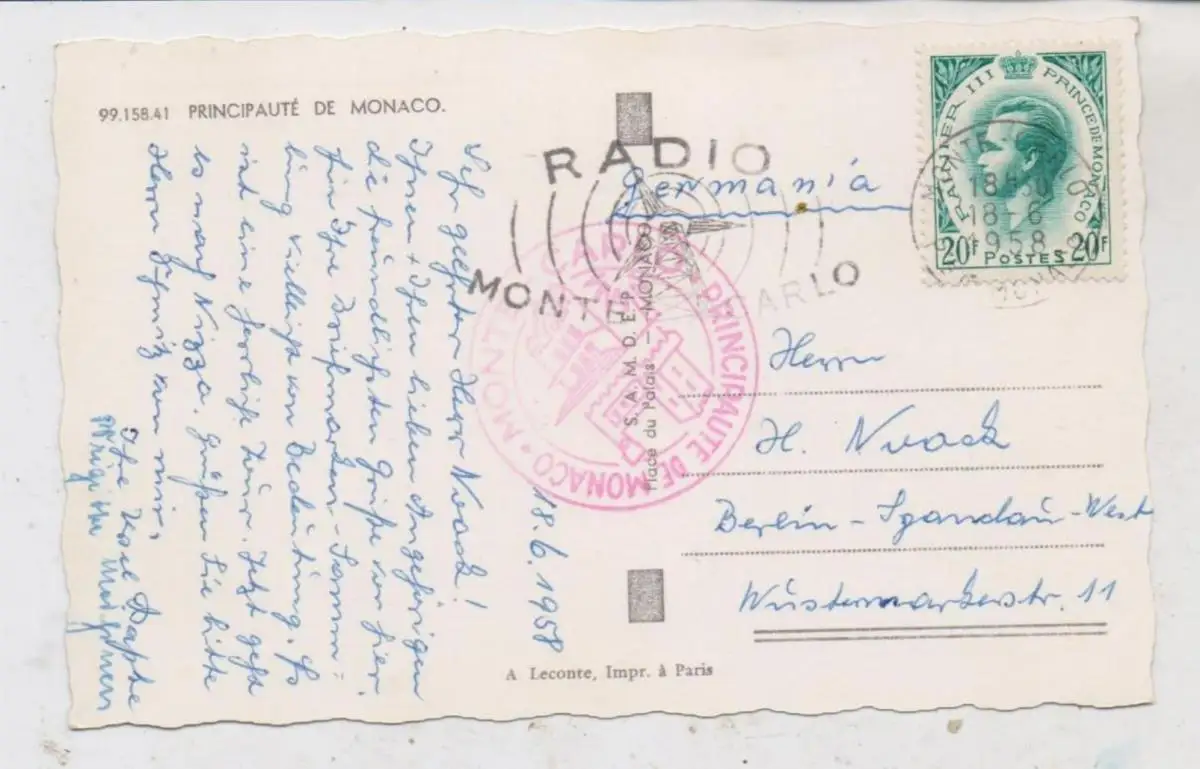 99.158.41 PRINCIPAUTÉ DE MONACO.
18.6.1958
Sehr geehrter Herr Noack!
Ihnen + Ihren lieben Angehörigen
die freundlichsten Grüße von hier.
Für Ihre Briefmarken-Samm=
lung vielleicht von Bedeutung. Es
ist eine herrliche Tour. Jetzt geht
es nach Nizza. Grüßen Sie bitte
Herrn Schmitz von mir,
Ihre
RADIO
MONTE CARLO
Germania
S.A.M.D.E.P.
Place du Palais — MONACO
PRINCIPAUTE DE MONACO • MONTE-CARLO
RAINIER III PRINCE DE MONACO
20F POSTES 20F
18H
18-6
1958
Herrn
H. Noack
Berlin-Spandau-West
Wustermarkerstr. 11
A Leconte, Impr. à Paris